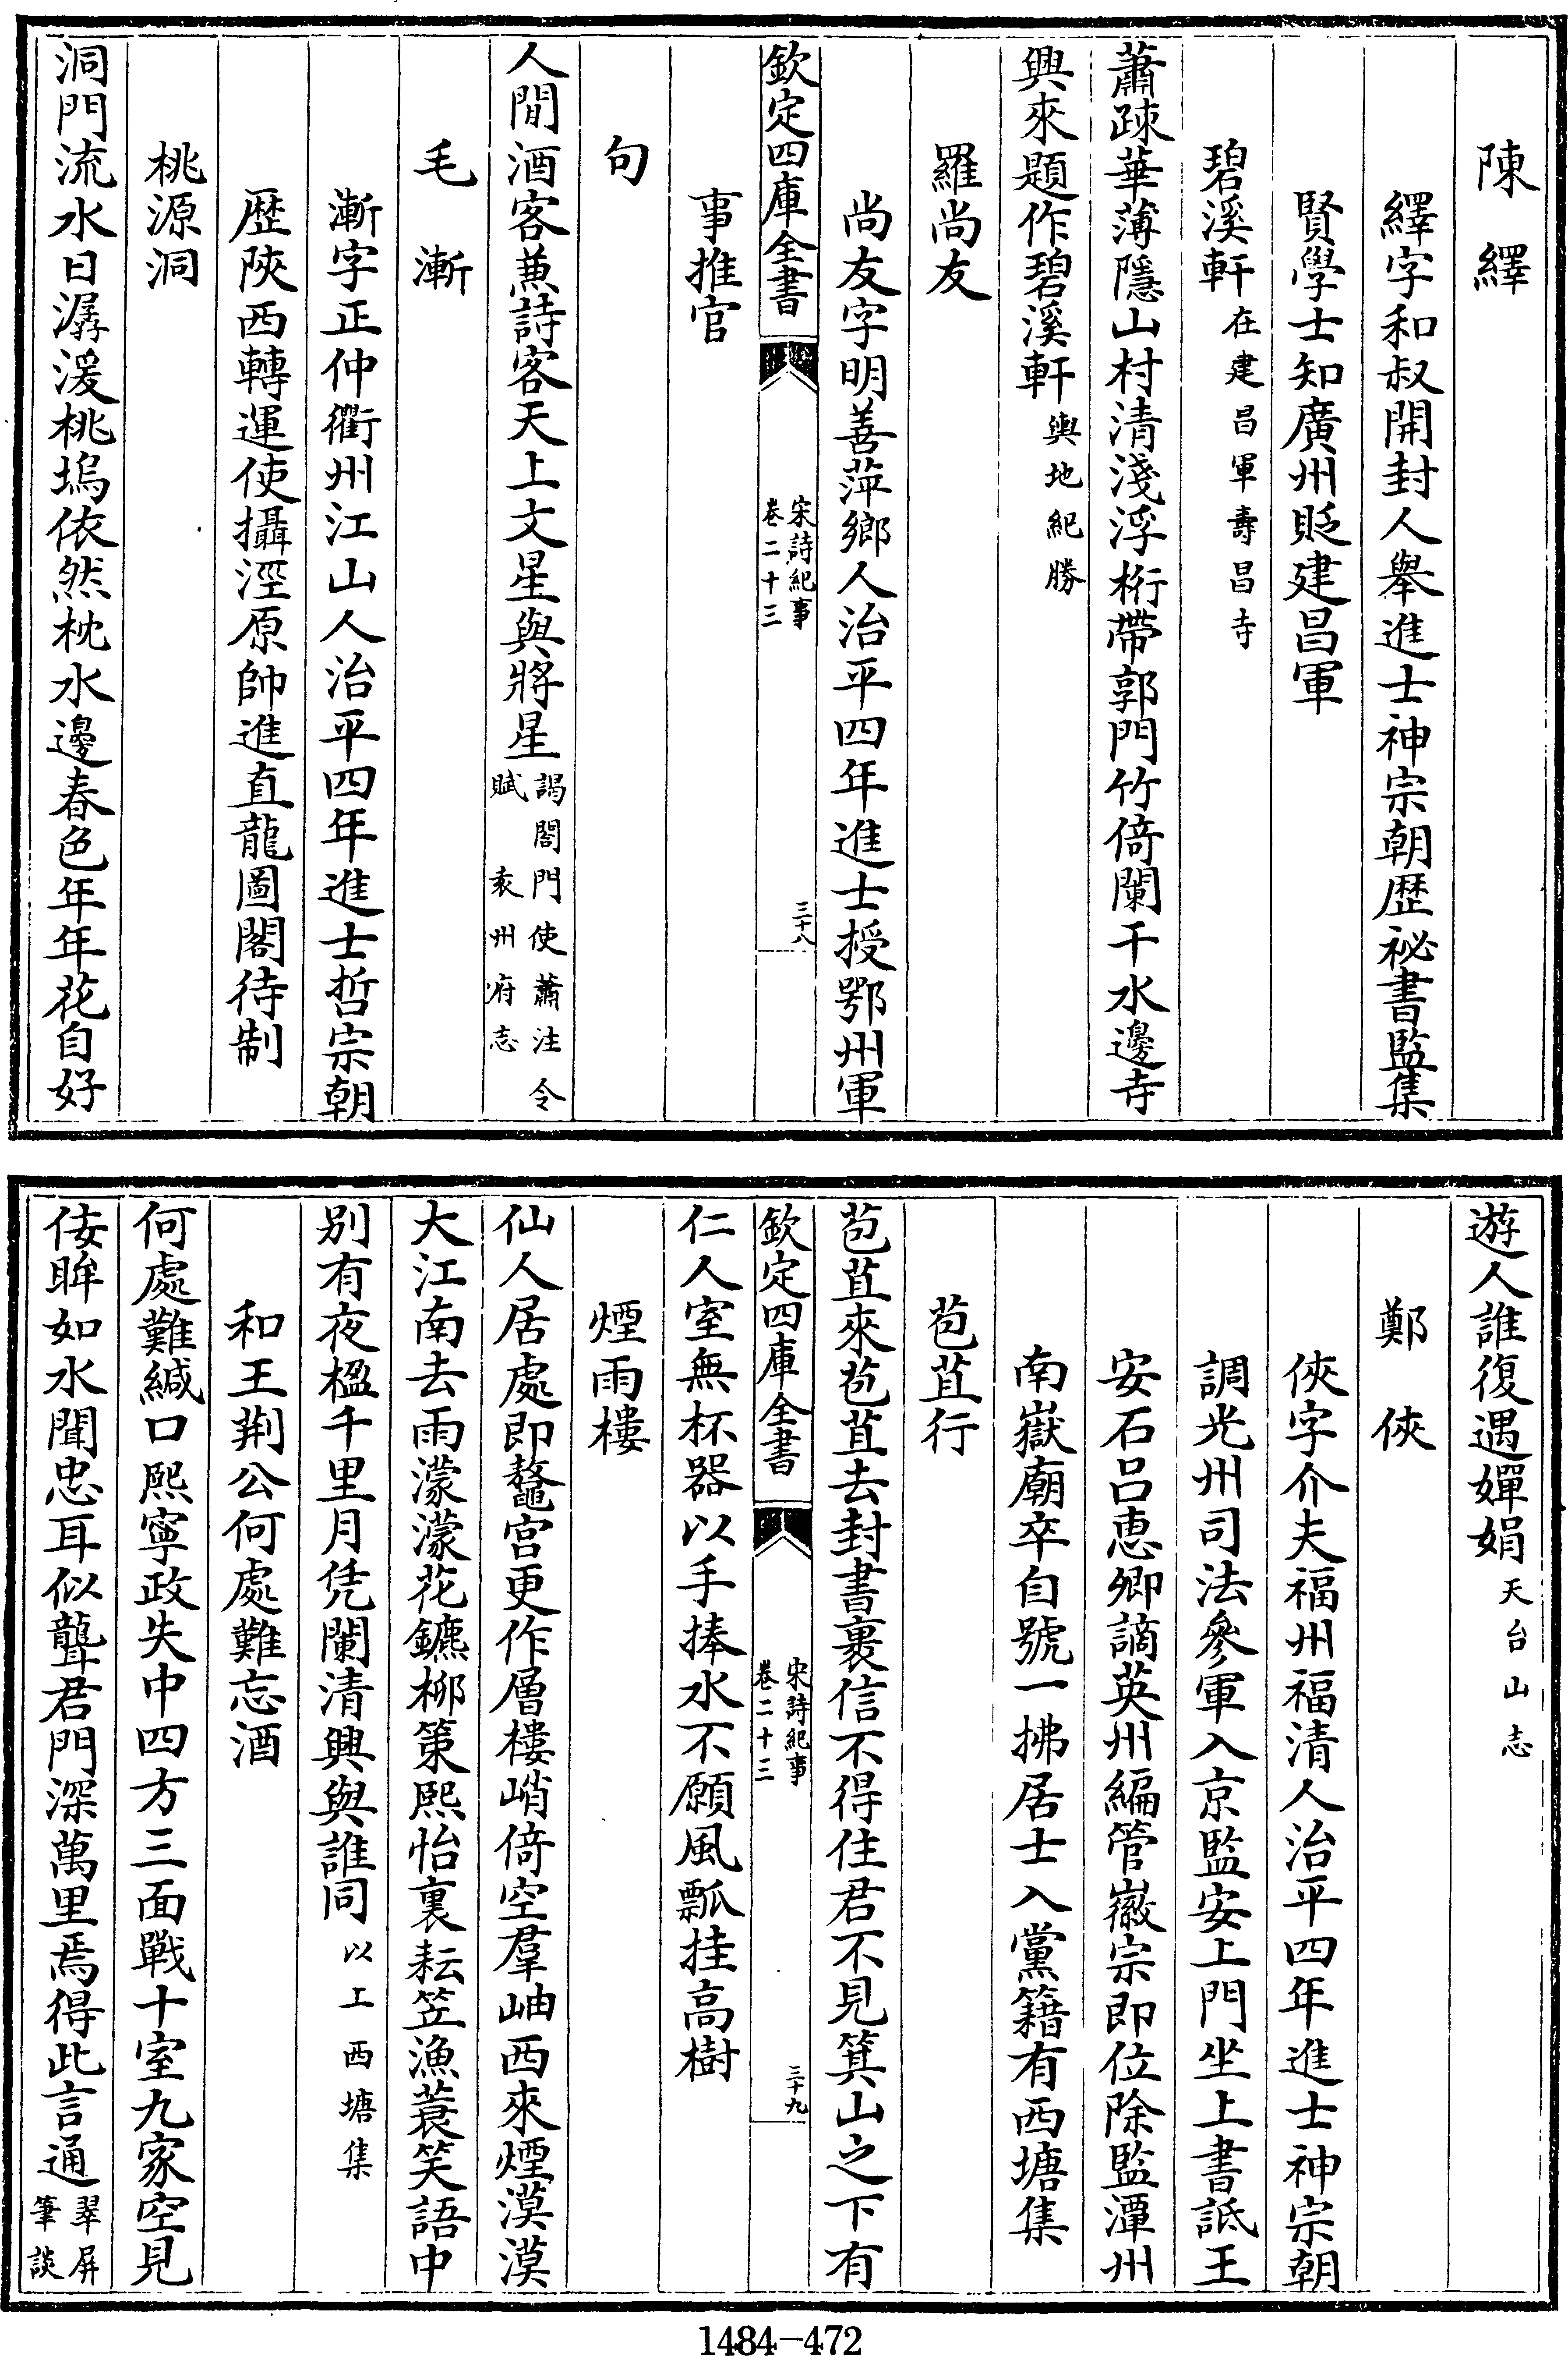 陳繹
繹字和叔開封人舉進士神宗朝歴祕書監集
賢學士知廣州貶建昌軍
碧溪軒在建昌軍壽昌寺
蕭疎華薄隱山村清淺浮桁帶郭門竹倚闌干水邊寺
興來題作碧溪軒輿地紀勝
羅尚友
尚友字明善萍鄉人治平四年進士授鄂州軍
欽定四庫全書
宋詩紀事
卷二十三
三十八
事推官
句
人間酒客兼詩客天上文星與將星謁閤門使蕭注令
賦 袁州府志
毛漸
漸字正仲衢州江山人治平四年進士哲宗朝
歴陜西轉運使攝涇原帥進直龍圖閣待制
桃源洞
洞門流水日潺湲桃塢依然枕水邊春色年年花自好
遊人誰復遇嬋娟天台山志
鄭俠
俠字介夫福州福清人治平四年進士神宗朝
調光州司法參軍入京監安上門坐上書詆王
安石吕惠卿謫英州編管徽宗即位除監潭州
南嶽廟卒自號一拂居士入黨籍有西塘集
苞苴行
苞苴來苞苴去封書裹信不得住君不見箕山之下有
欽定四庫全書
宋詩紀事
卷二十三
三十九
仁人室無杯器以手捧水不願風瓢挂高樹
煙雨樓
仙人居處即鼇宫更作層樓峭倚空羣岫西來煙漠漠
大江南去雨濛濛花鑣柳策熙怡裏耘笠漁蓑笑語中
别有夜楹千里月凭闌清興與誰同以工西塘集
和王荆公何處難忘酒
何處難緘口熙寧政失中四方三面戰十室九家空見
佞眸如水聞忠耳似聾君門深萬里焉得此言通翠屏
筆談
1484-472